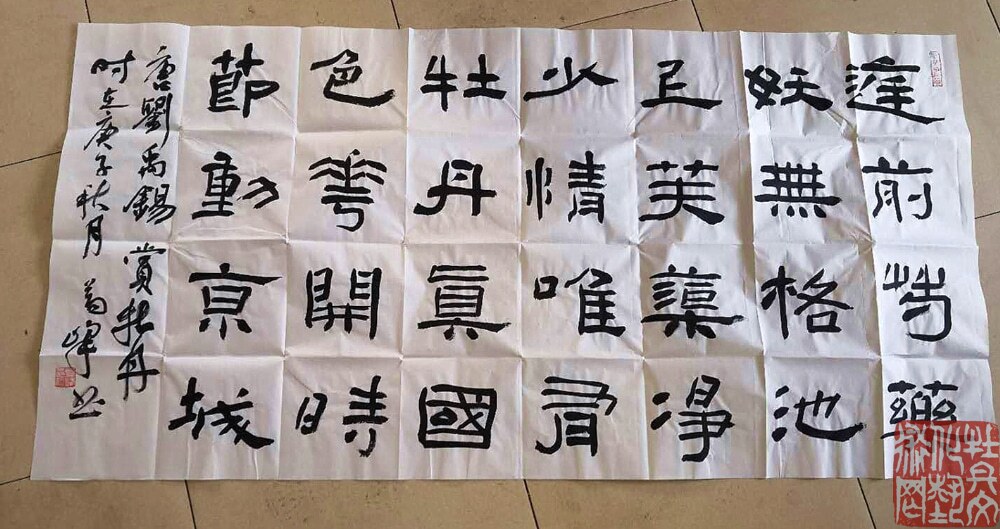 庭前芍藥
妖無格池
上芙蕖淨
少情唯有
牡丹眞國
色華開時
節動京城
唐劉禹錫賞牡丹
时在庚子秋月